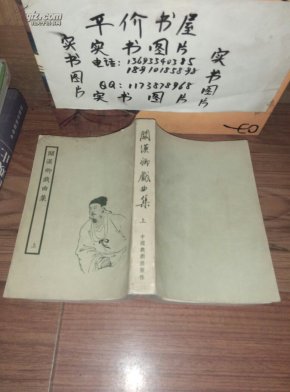 平价书屋
实书图片
实书图片
实书图片
电话：13693340315
18910185898
QQ：1173878968
实书图片
關漢卿戲曲集
上
關漢卿戲曲集
上
中國戲劇出版社